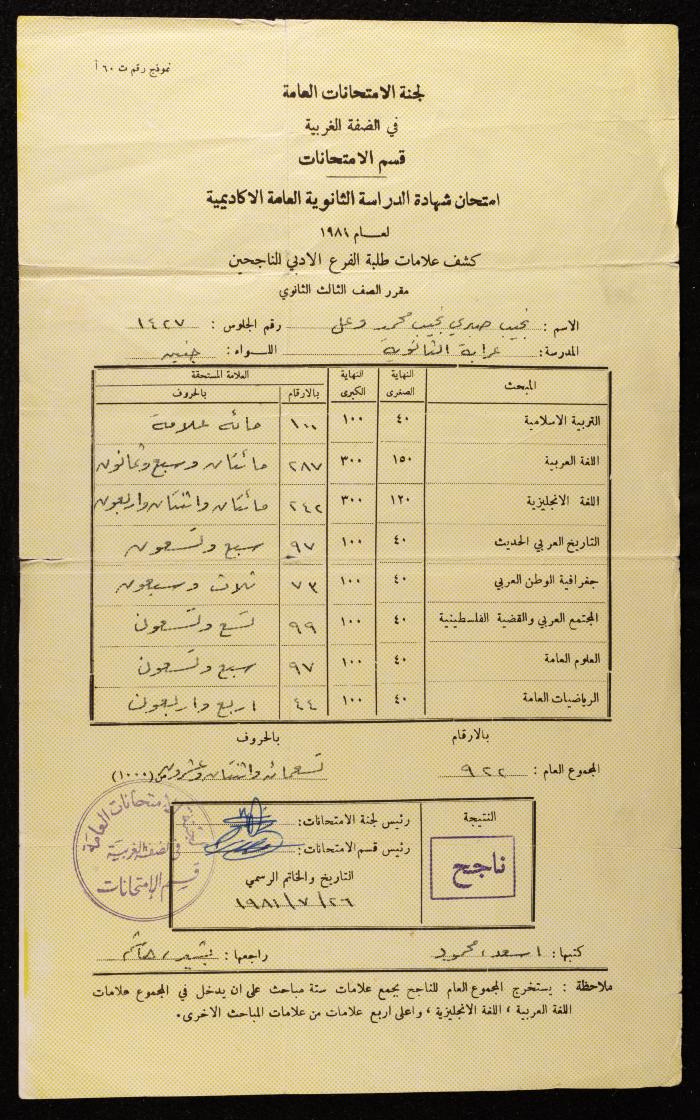 نموذج رقم ت ٦٠ أ
لجنة الامتحانات العامة
في الضفة الغربية
قسم الامتحانات
امتحان شهادة الدراسة الثانوية العامة الاكاديمية
لعــام ١٩٨١
كشف علامات طلبة الفرع الادبي الناجحين
مقرر الصف الثالث الثانوي
الاسم : نجيب صبري نجيب محمد رقم الجلوس : ١٤٢٧
المدرسة : عرابة الثانوية اللـــواء : جنين
المبحث النهاية الصغرى النهاية الكبرى العلامة المستحقة
بالارقام بالحروف
التربية الاسلامية ٤٠ ١٠٠ ١٠٠ مائة علامة
اللغة العربية ١٥٠ ٣٠٠ ٢٨٧ مائتان وسبع وثمانون
اللغة الانجليزية ١٢٠ ٣٠٠ ٢٤٢ مائتان واثنتان واربعون
التاريخ العربي الحديث ٤٠ ١٠٠ ٩٧ سبع وتسعون
جغرافية الوطن العربي ٤٠ ١٠٠ ٧٣ ثلاث وسبعون
المجتمع العربي والقضية الفلسطينية ٤٠ ١٠٠ ٩٩ تسع وتسعون
العلوم العامة ٤٠ ١٠٠ ٩٧ سبع وتسعون
الرياضيات العامة ٤٠ ١٠٠ ٤٤ اربع واربعون
بالارقام بالحروف
المجموع العام : ٩٢٢ تسعمائة واثنتان وعشرون من (١٠٠٠)
النتيجة
ناجح
رئيس لجنة الامتحانات :
رئيس قسم الامتحانات :
التاريخ والخاتم الرسمي
١٩٨١/٧/٢٦
لجنة الامتحانات العامة
في الضفة الغربية
قسم الامتحانات
كتبها : اسعد، محمود راجعها :
ملاحظة : يستخرج المجموع العام للناجح بجمع علامات ستة مباحث على ان يدخل في المجموع علامات
اللغة العربية ، اللغة الانجليزية ، واعلى اربع علامات من علامات المباحث الاخرى.